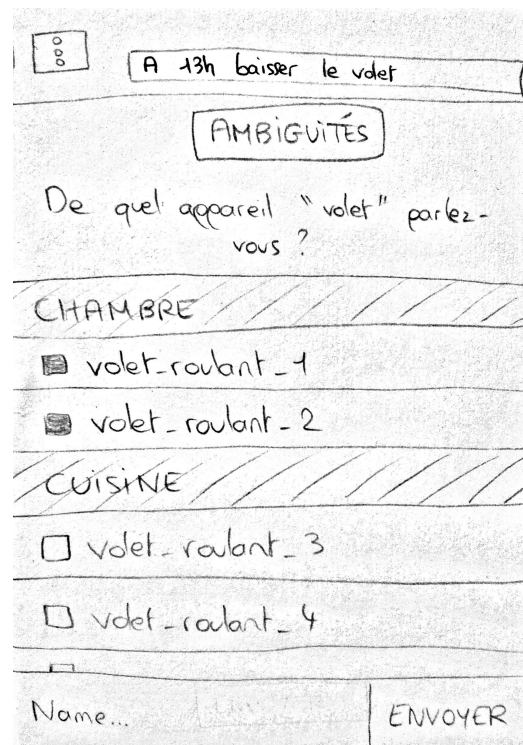 A 13h baisser le volet
AMBIGUITÉS
De quel appareil "volet" parlez-
vous ?
CHAMBRE
volet_roulant_1
volet_roulant_2
CUISINE
volet_roulant_3
volet_roulant_4
Name... ENVOYER